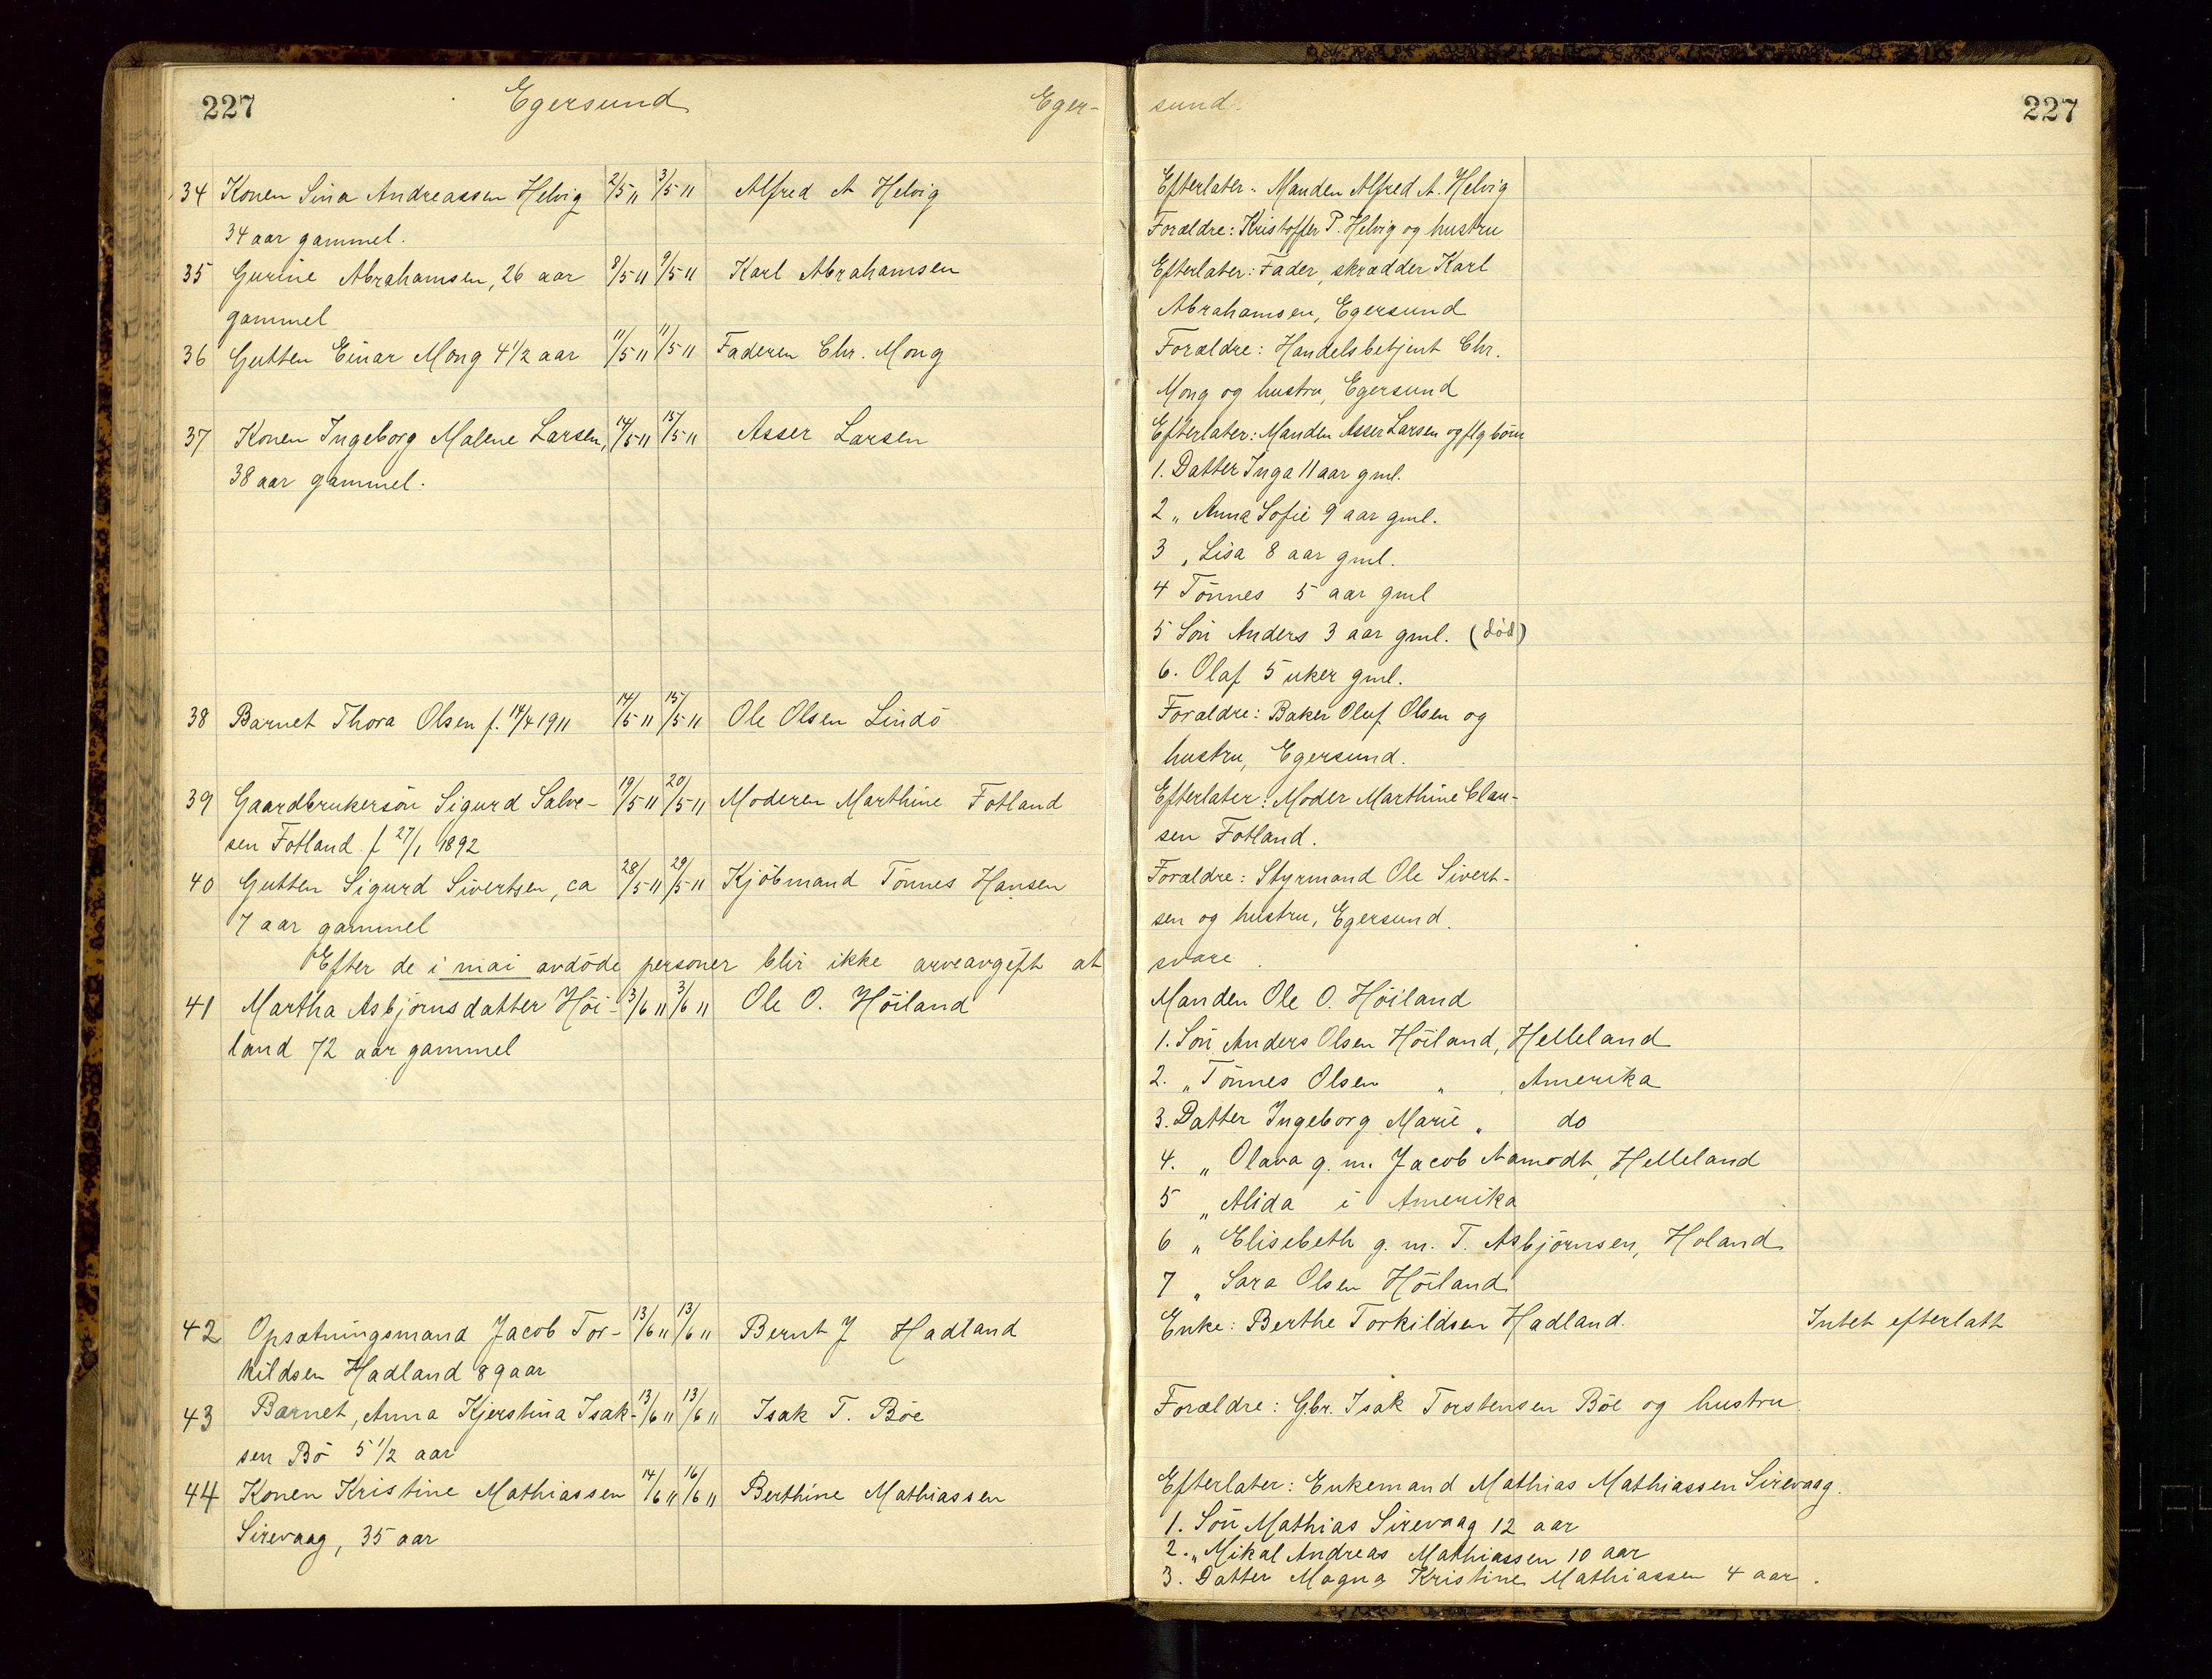 227 Egersund Eger- sund. 227
34 Konen Sina Andreassen Helvig 2/5 11 3/5 11 Alfred A Helvig Efterlater: Manden Alfred A. Helvig
34 aar gammel. Forældre: Kristoffer P. Helvig og hustru
35 Gurine Abrahamsen, 26 aar 8/5 11 9/5 11 Karl Abrahamsen Efterlater: Fader, skrædder Karl
gammel Abrahamsen, Egersund
36 Gutten Einar Mong 4 1/2 aar 11/5 11 11/5 11 Faderen Chr. Mong Forældre: Handelsbetjent Chr.
Mong og hustru, Egersund
37 Konen Ingeborg Malene Larsen, 14/5 11 15/5 11 Asser Larsen Efterlater: Manden Asser Larsen og flg börn
38 aar gammel. 1. Datter Inga 11 aar gml.
2 „ Anna Sofie 9 aar gml.
3 „ Lisa 8 aar gml.
4 Tönnes 5 aar gml
5 Sön Anders 3 aar gml. (död)
6. Olaf 5 uker gml.
38 Barnet Thora Olsen f. 14/4 1911 14/5 11 15/5 11 Ole Olsen Lindö Forældre: Baker Oluf Olsen og
hustru, Egersund.
39 Gaardbrukersön Sigurd Salve- 19/5 11 20/5 11 Moderen Marthine Fotland Efterlater: Moder Marthine Clau-
sen Fotland f 27/1 1892 sen Fotland.
40 Gutten Sigurd Sivertsen, ca 28/5 11 29/5 11 Kjöbmand Tönnes Hansen Forældre: Styrmand Ole Sivert-
7 aar gammel sen og hustru, Egersund.
Efter de i mai avdöde personer blir ikke arveavgift at svare.
41 Martha Asbjörnsdatter Höi- 3/6 11 3/6 11 Ole O. Höiland Manden Ole O. Höiland
land 72 aar gammel 1. Sön Anders Olsen Höiland, Helleland
2. „ Tönnes Olsen „ , Amerika
3. Datter Ingeborg Marie „ do
4. „ Olava g. m. Jacob Aamodt, Helleland
5 „ Alida i Amerika
6 „ Elisebeth g. m. T. Asbjörnsen, Holand
7 „ Sara Olsen Höiland
42 Opsætningsmand Jacob Tor- 13/6 11 13/6 11 Bernt J Hadland Enke: Berthe Torkildsen Hadland. Intet efterlatt
kildsen Hadland 89 aar
43 Barnet, Anna Kjerstina Isak- 13/6 11 13/6 11 Isak T. Böe Forældre: Gbr. Isak Torstensen Böe og hustru.
sen Bö 5 1/2 aar
44 Konen Kristine Mathiassen 14/6 11 16/6 11 Berthine Mathiassen Efterlater: Enkemand Mathias Mathiassen Sirevaag.
Sirevaag, 35 aar 1. Sön Mathias Sirevaag 12 aar
2. „ Mikal Andreas Mathiassen 10 aar
3. Datter Magna Kristine Mathiassen 4 aar.